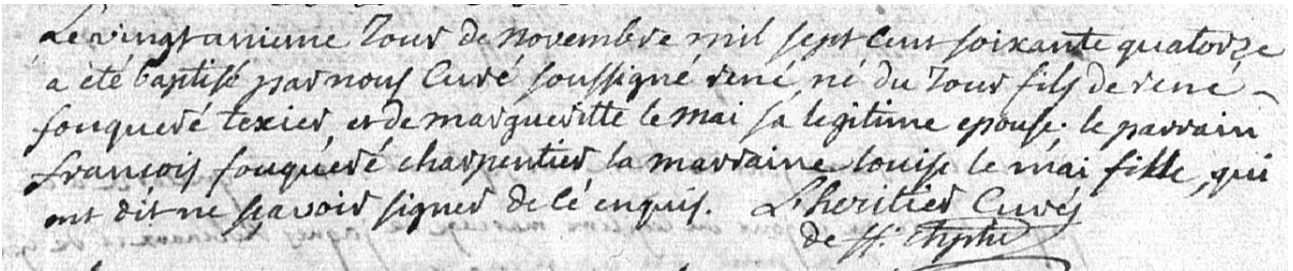 Le vingt unieme Jour de novembre mil sept cent soixante quatorze
a été baptisé par nous Curé soussigné rené né du Jour fils de rené
fouqueré texier, et de margueritte le mai sa legitime epouse. le parrain
françois fouqueré charpentier la marraine louise le mai fille, qui
ont dit ne sçavoir signer de ce enquis. L'heritier Curé
de St.